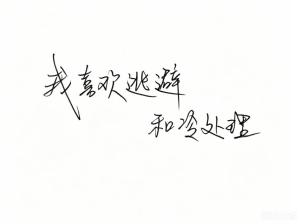 我喜欢逃避
和冷处理